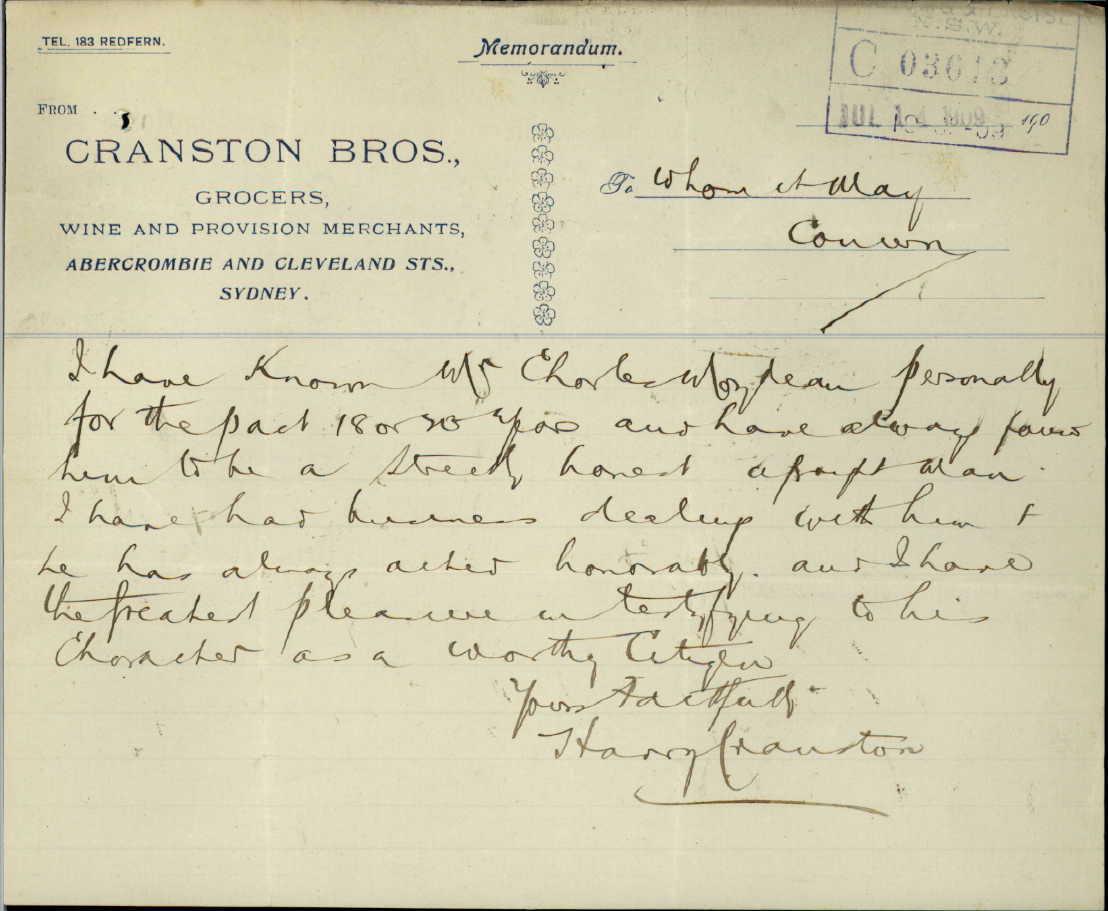 TEL. 183 REDFERN.
Memorandum.
N.S.W.
C 03613
JUL 14 1909
190
FROM
CRANSTON BROS.,
GROCERS,
WINE AND PROVISION MERCHANTS,
ABERCROMBIE AND CLEVELAND STS.,
SYDNEY.
To Whom it May
Concern
I have Known Mr Charles personally
for the past 18 or 20 Years and have always found
him to be a Streetly honest upright Man
I have had business dealings with him +
he has always acted honorably. and I have
the greatest pleasure in testifying to his
Character as a worthy Citizen
Yours Faithfully
Harry Cranston